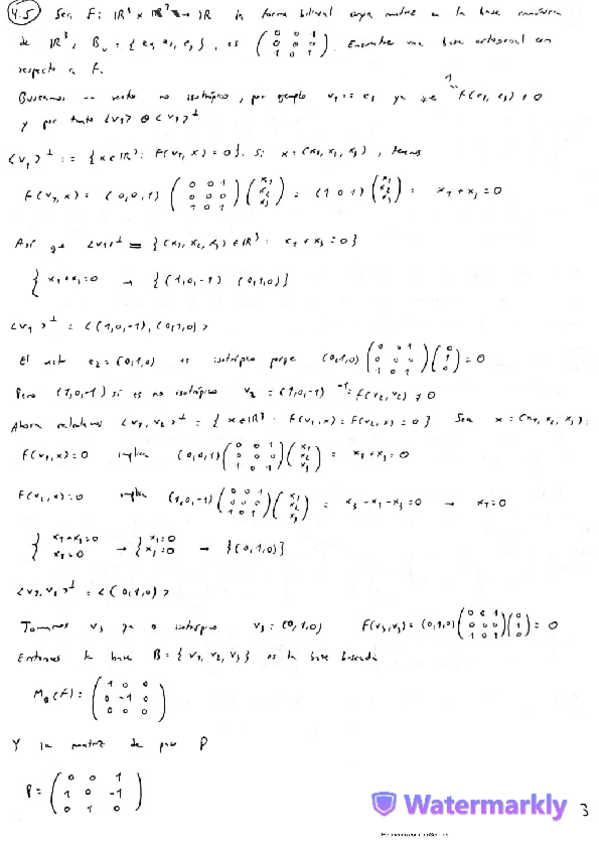 4.5) Sea F: ℝ³ × ℝ³ → ℝ la forma bilineal cuya matriz en la base canónica
de ℝ³, Bᵤ = {e₁, e₂, e₃}, es (0 0 1 / 0 0 0 / 1 0 1). Encontrar una base ortogonal con
respecto a F.
Buscamos un vector no isotrópico, por ejemplo v₁ = e₃ ya que F(e₃, e₃) ≠ 0
y por tanto <v₁> ⊕ <v₁>^⊥
<v₁>^⊥ := {x ∈ ℝ³ : F(v₁, x) = 0}. Si x = (x₁, x₂, x₃), tenemos
F(v₁, x) = (0,0,1) (0 0 1 / 0 0 0 / 1 0 1) (x₁ / x₂ / x₃) = (1 0 1) (x₁ / x₂ / x₃) = x₁ + x₃ = 0
Así que <v₁>^⊥ = {(x₁, x₂, x₃) ∈ ℝ³ : x₁ + x₃ = 0}
{ x₁ + x₃ = 0 → {(1,0,-1) (0,1,0)}
<v₁>^⊥ = <(1,0,-1), (0,1,0)>
El vector e₂ = (0,1,0) es isotrópico porque (0,1,0) (0 0 1 / 0 0 0 / 1 0 1) (0 / 1 / 0) = 0
Pero (1,0,-1) si es no isotrópico v₂ = (1,0,-1) -1 = F(v₂, v₂) ≠ 0
Ahora calculamos <v₁, v₂>^⊥ = {x ∈ ℝ³ : F(v₁, x) = F(v₂, x) = 0} Sea x = (x₁, x₂, x₃):
F(v₁, x) = 0 implica (0,0,1) (0 0 1 / 0 0 0 / 1 0 1) (x₁ / x₂ / x₃) = x₁ + x₃ = 0
F(v₂, x) = 0 implica (1,0,-1) (0 0 1 / 0 0 0 / 1 0 1) (x₁ / x₂ / x₃) = x₃ - x₁ - x₃ = 0 → x₁ = 0
{ x₁ + x₃ = 0 / x₁ = 0 → { x₁ = 0 / x₃ = 0 → {(0,1,0)}
<v₁, v₂>^⊥ = <(0,1,0)>
Tomamos v₃ ya isotrópico v₃ = (0,1,0) F(v₃, v₃) = (0,1,0) (0 0 1 / 0 0 0 / 1 0 1) (0 / 1 / 0) = 0
Entonces la base B = {v₁, v₂, v₃} es la base buscada
M_B(F) = (1 0 0 / 0 -1 0 / 0 0 0)
Y la matriz de paso P
P = (0 0 1 / 1 0 -1 / 0 1 0)
Watermarkly
3